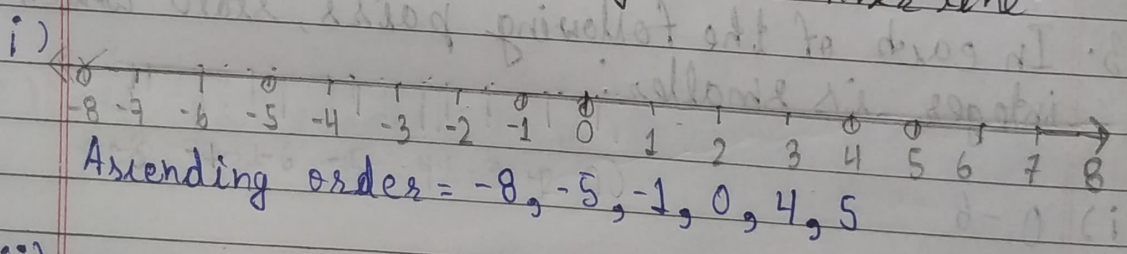 i)
-8 -7 -6 -5 -4 -3 -2 -1 0 1 2 3 4 5 6 7 8
Ascending order = -8, -5, -1, 0, 4, 5